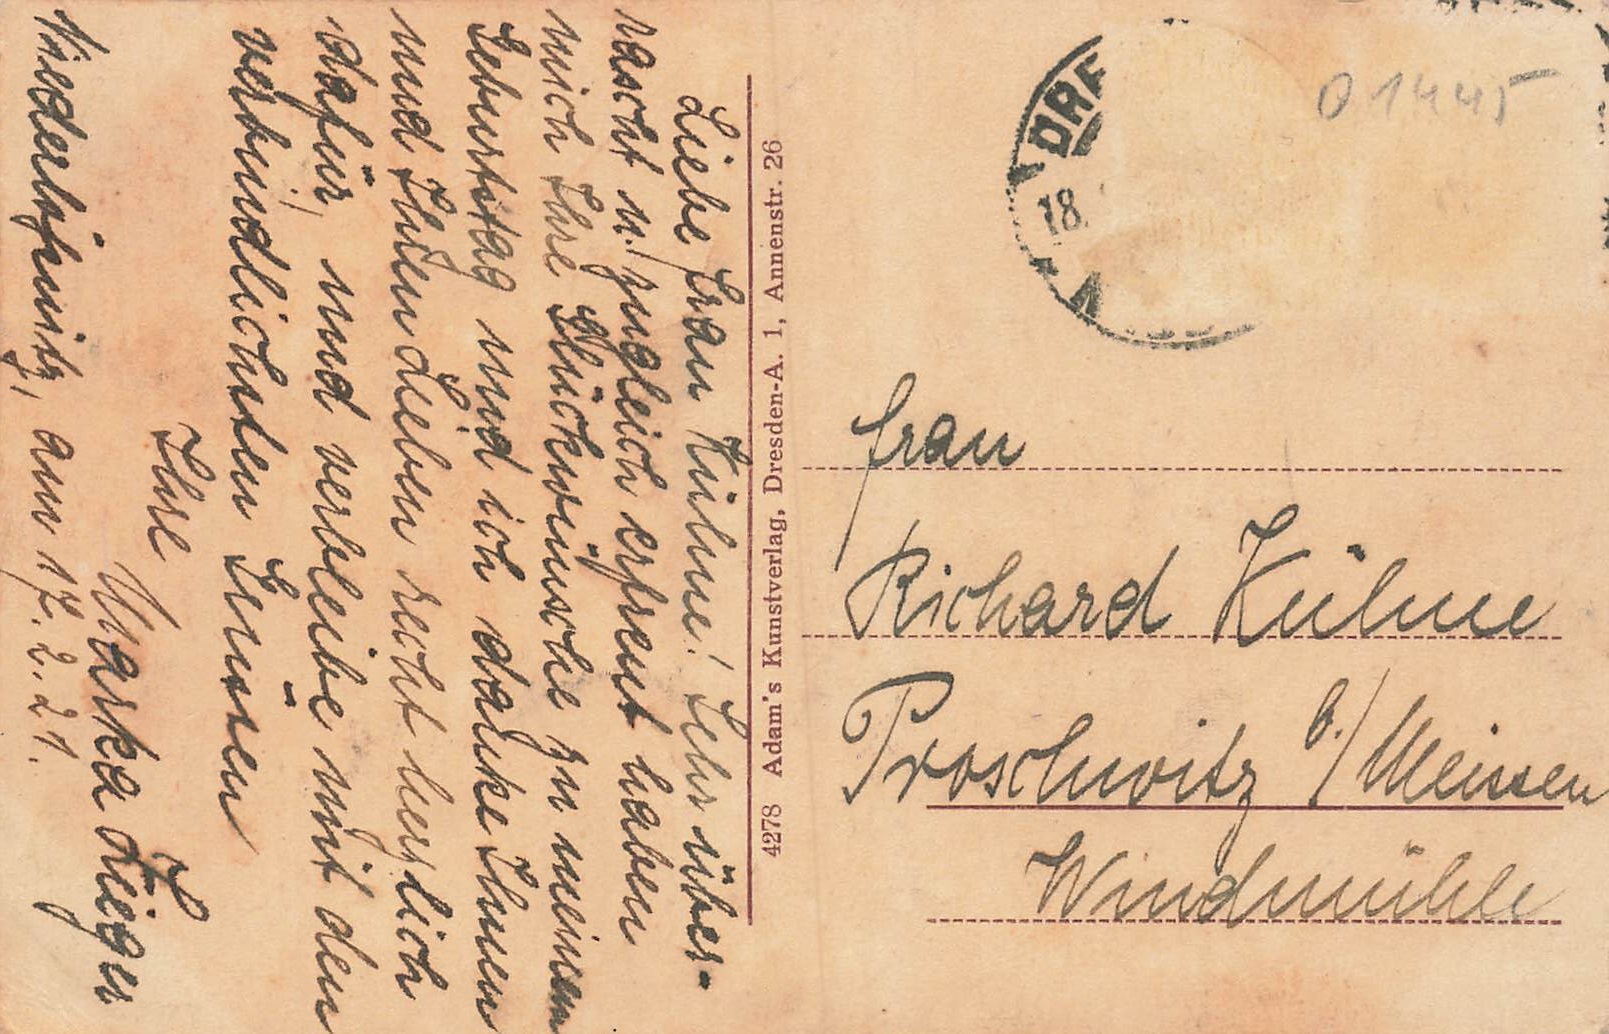 Liebe Frau Kühne! Sehr über-
rascht u. zugleich erfreut haben
mich Ihre Glückwünsche zu meinem
Geburtstag und ich danke Ihnen
und Ihren Lieben recht herzlich
dafür, und verbleibe mit den
verbindlichsten Grüßen
Ihre
Marka
am 17. 2. 21.
4278 Adam's Kunstverlag, Dresden-A. 1, Annenstr. 26
DRF
18.
01445
Frau
Richard Kühne
Proschwitz b./Meissen
Windmühle